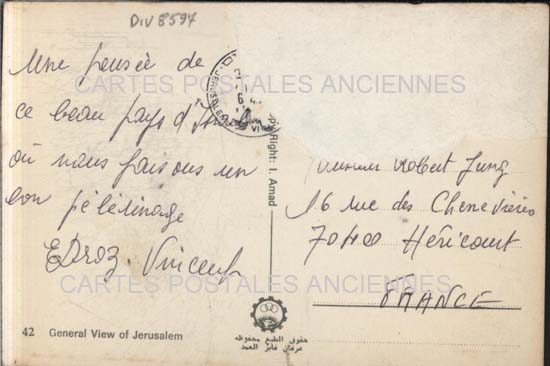 DIV 8597
Une pensée de
ce beau pays d'Israël
où nous faisons un
bon pèlerinage
EDROZ. Vincent
CARTES POSTALES ANCIENNES
CARTES POSTALES ANCIENNES
JERUSALEM
CopyRight: I. Amad
Robert Jung
16 rue des Chenevières
70400 Héricourt
FRANCE
42 General View of Jerusalem
حقوق الطبع محفوظة
عرفان فايز العمد